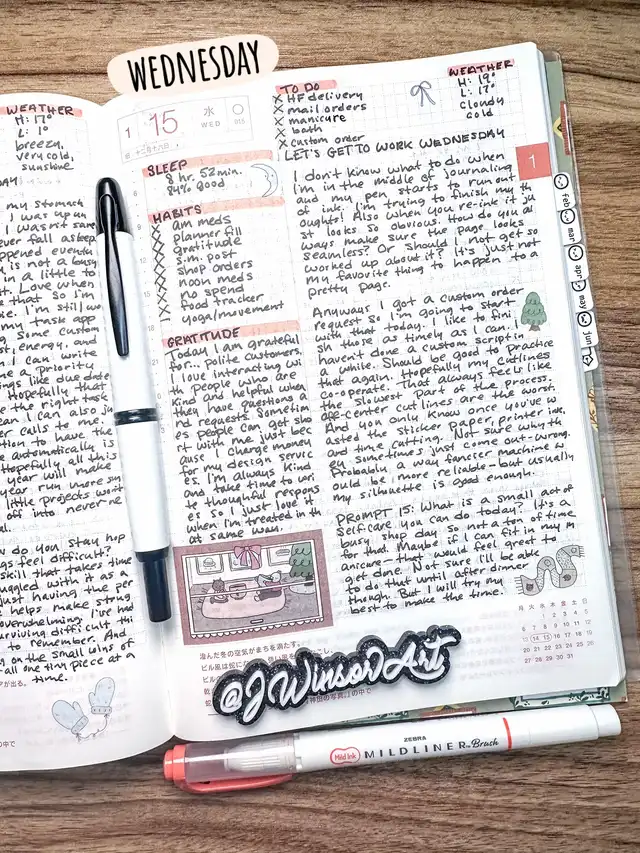 WEDNESDAY
WEATHER
H: 17°
L: 1°
breezy,
very cold,
sunshine
my stomach
I was up
I wasn't
ever fall asleep
is not a busy
in a little to
Love when
that So I'm
I'm still
my taste
some custom
st, energy, and
I can write
e a priority
ings like due date
Hopefully that
the right task
ean I can also
er calls to me.
tion to have the
e automatically is
Hopefully all this
year will make
year run more
little projects
off into never
do you stay hop
gs feel difficult?
skill that takes time
uggled with it as a
Just having the per
e helps make
overwhelming. I've had
urviving difficult
to remember. And
on the small wins of
all one tiny piece at a
time.
1 15 水 WED 015
SLEEP
8 hr. 52min.
84% Good
HABITS
am meds
planner fill
gratitude
s.m. post
shop orders
noon meds
no spend
food tracker
yoga/movement
GRATITUDE
Today I am grateful
for... polite customers.
I love interacting wi
th people who are
kind and helpful when
they have questions a
nd requests. Sometim
es people can get sho
rt with me just bec
ause I charge money
for my design servic
es. I'm always kind
and take time to wri
te thoughtful respons
es so I just love it
when I'm treated in th
at same way.
TO DO
X HF delivery
X mail orders
X manicure
X bath
X custom order
WEATHER
H: 19°
L: 17°
cloudy
cold
LET'S GET TO WORK WEDNESDAY
I don't know what to do when
I'm in the middle of journaling
and my pen starts to run out
of ink. I'm trying to finish my th
oughts! Also when you re-ink it ju
st looks so obvious. How do you al
ways make sure the page looks
seamless? Or should I not get so
worked up about it? It's just not
my favorite thing to happen to a
pretty page.
Anyways I got a custom order
request so I'm going to start
with that today. I like to fini
sh those as timely as I can. I
haven't done a custom script in
a while. Should be good to practice
that again. Hopefully my cutlines
co-operate. That always feels like
the slowest part of the process.
off-center cut lines are the worst.
And you only know once you've w
asted the sticker paper, printer ink,
and time cutting. Not sure why th
ey sometimes just come out wrong.
Probably a way fancier machine w
ould be more reliable-but usually
my silhouette is good enough.
PROMPT 15: What is a small act of
Self care you can do today? It's a
busy shop day so not a ton of time
for that. Maybe if I can fit in my m
anicure-that would feel great to
get done. Not sure I'll be able
to do that until after dinner
though. But I will try my
best to make the time.
1
feb
mar
apr
may
jun
月 火 水 木 金 土 日
1 2 3 4 5
6 7 8 9 10 11 12
13 14 15 16 17 18 19
20 21 22 23 24 25 26
27 28 29 30 31
@JWinsorArt
Mild Ink
ZEBRA
MILDLINER Brush